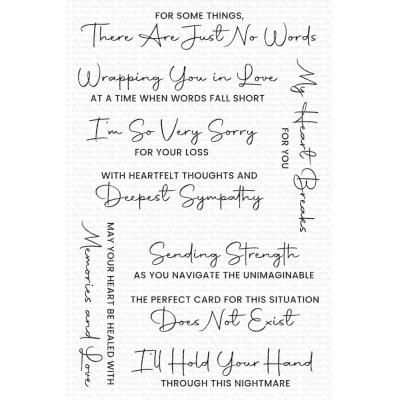 FOR SOME THINGS,
There Are Just No Words
Wrapping You in Love
AT A TIME WHEN WORDS FALL SHORT
I'm So Very Sorry
FOR YOUR LOSS
My Heart Breaks
FOR YOU
WITH HEARTFELT THOUGHTS AND
Deepest Sympathy
MAY YOUR HEART BE HEALED WITH
Memories and Love
Sending Strength
AS YOU NAVIGATE THE UNIMAGINABLE
THE PERFECT CARD FOR THIS SITUATION
Does Not Exist
I'll Hold Your Hand
THROUGH THIS NIGHTMARE